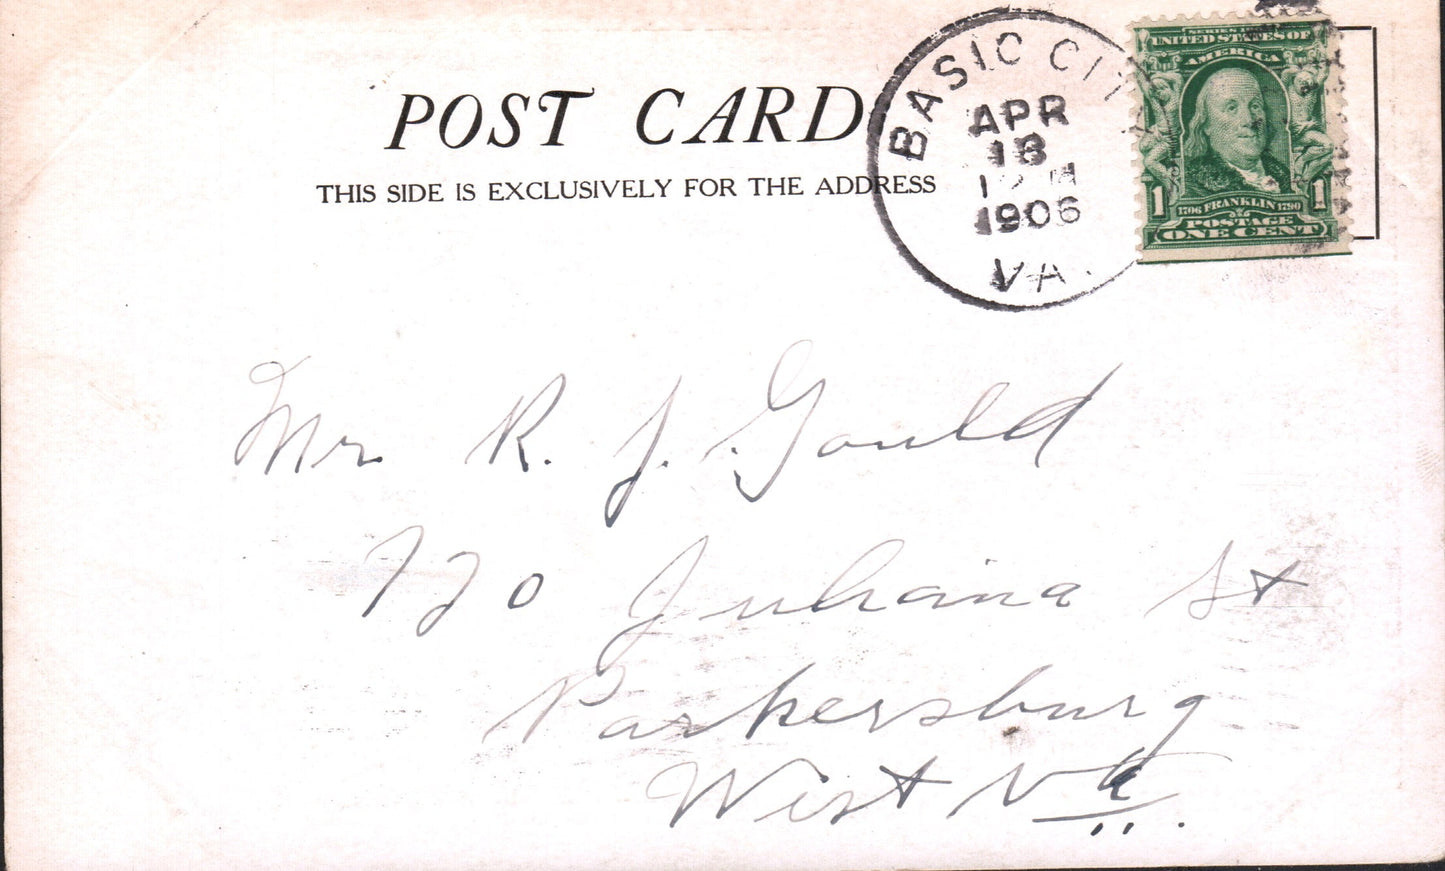 POST CARD
THIS SIDE IS EXCLUSIVELY FOR THE ADDRESS
BASIC CIT
APR
18
1906
VA.
UNITED STATES OF
AMERICA
1 1706 FRANKLIN 1790 1
POSTAGE
ONE CENT
Mr R. J. Gould
720 Juliana St
Parkersburg
West Va.